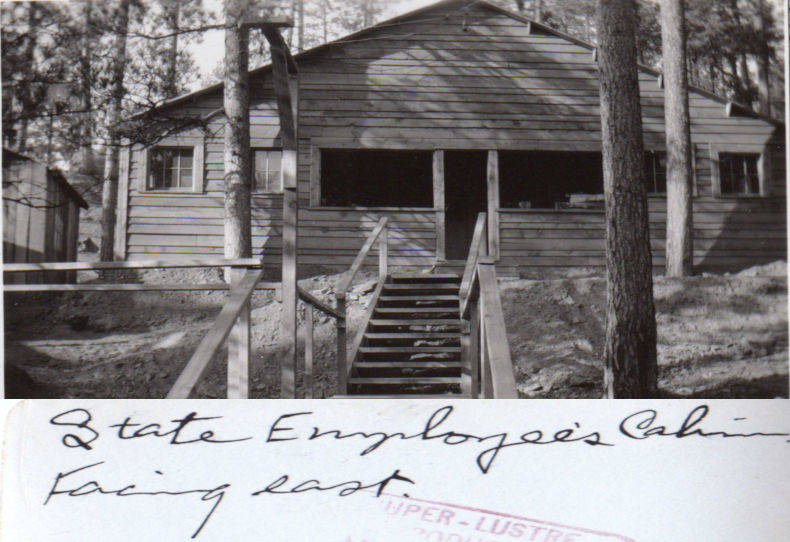 State Employee's Cabin
Facing east.
UPER-LUSTRE